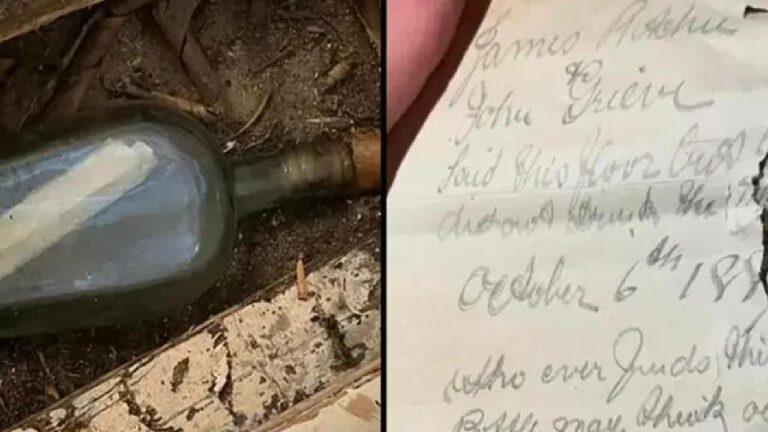 James Ritchie
& John Grieve
laid this floor but
did not drink the
October 6th 188
who ever finds this
Bottle may think